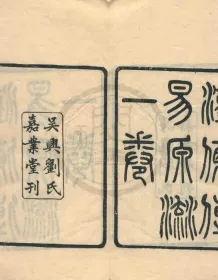 漢儒傳
易原流
一卷
吳興劉氏
嘉業堂刊